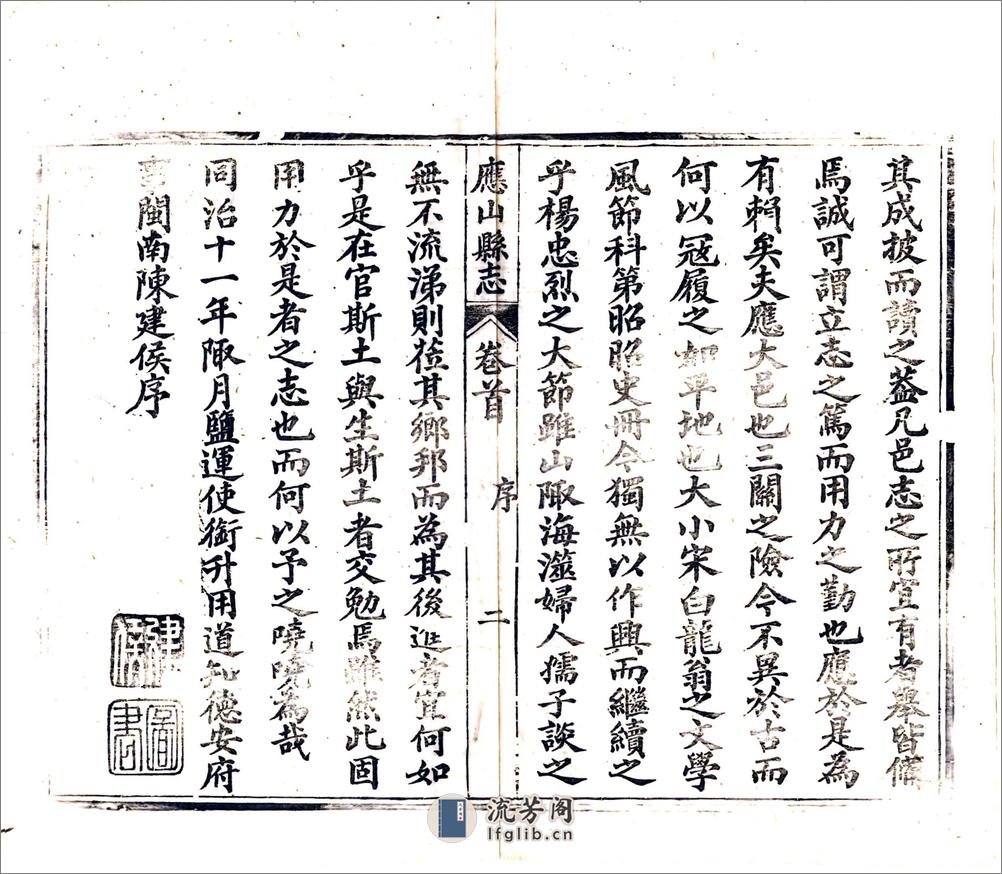 其成披而讀之葢凡邑志之所宜有者舉皆備
焉誠可謂立志之篤而用力之勤也應於是為
有賴矣夫應大邑也三關之險今不異於古而
何以冦履之如平地也大小宋白龍翁之文學
風節科第昭昭史冊今獨無以作興而繼續之
乎楊忠烈之大節雖山陬海澨婦人孺子談之
應山縣志 卷首 序 二
無不流涕則莅其鄉邦而為其後進者宜何如
乎是在官斯土與生斯土者交勉焉雖然此固
用力於是者之志也而何以予之嘵嘵為哉
同治十一年陬月鹽運使銜升用道知德安府
事閩南陳建侯序
建侯
圖書
流芳阁
lfglib.cn